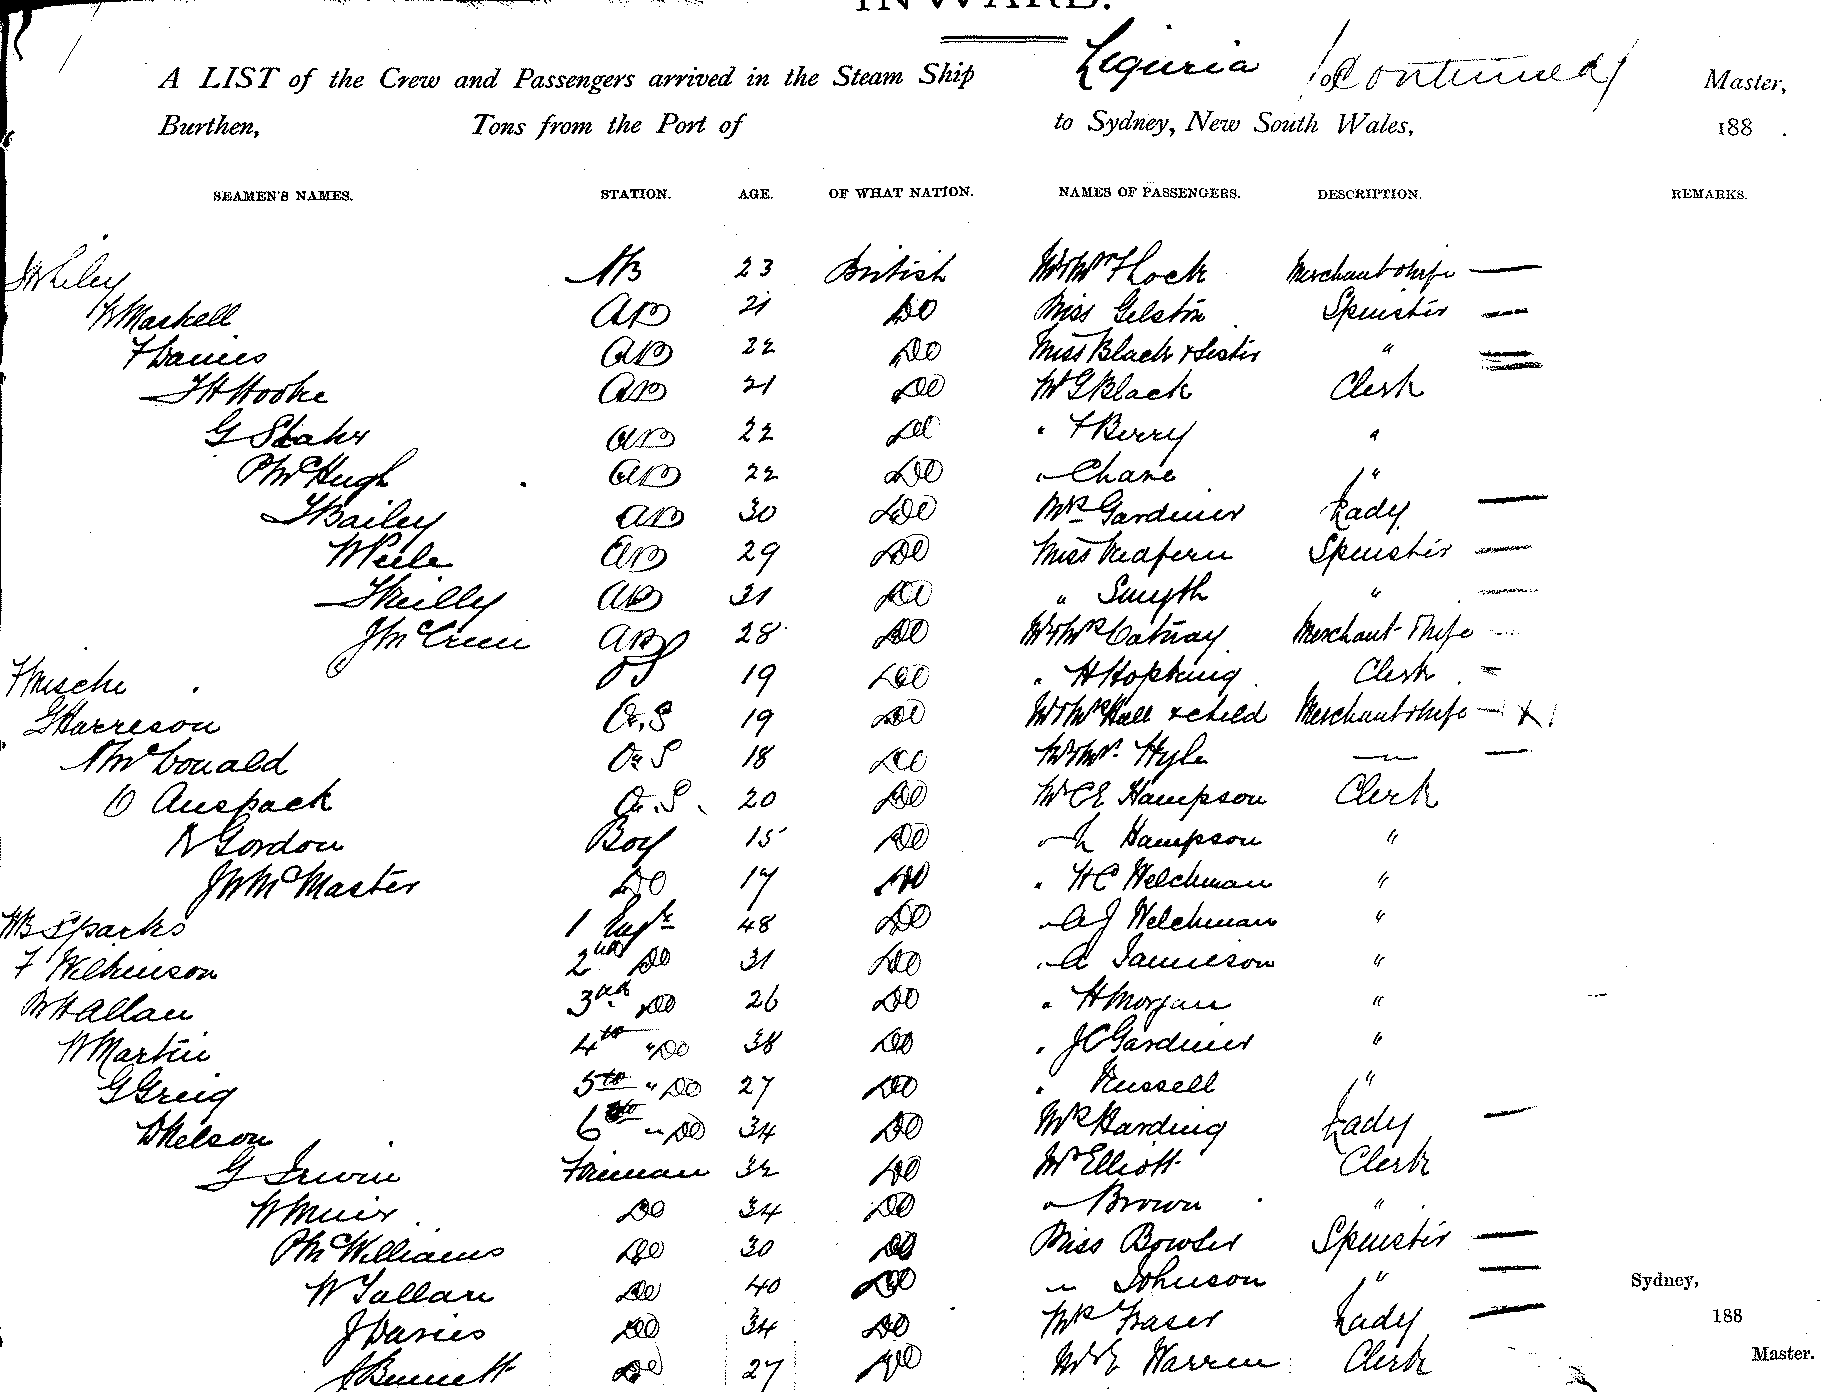 INWARD.
A LIST of the Crew and Passengers arrived in the Steam Ship Liguria (Continued) of Master,
Burthen, Tons from the Port of to Sydney, New South Wales, 188 .
SEAMEN'S NAMES. STATION. AGE. OF WHAT NATION. NAMES OF PASSENGERS. DESCRIPTION. REMARKS.
Liley AB 23 British Mr & Mrs Flock Merchant & Wife —
Maskell AB 21 Do Miss Gelston Spinster —
F Davies AB 22 Do Miss Black & Sister "
Hooke AB 21 Do Mr G Black Clerk
G Stahr AB 22 Do " F Berry "
P McHugh AB 22 Do " Chane "
Bailey AB 30 Do Mrs Gardiner Lady —
W Peile AB 29 Do Miss Redfern Spinster —
Reilly AB 31 Do " Smyth "
J McCrum AB 28 Do Mr & Mrs Merchant & Wife
OS 19 Do " H Hopking Clerk
G Harreson Or. S 19 Do Mr & Mrs Hall & child Merchant & Wife
McDonald Or S 18 Do Mr & Mrs Hyle —
O Anspack Or. S 20 Do Mr C E Hampson Clerk
R Gordon Boy 15 Do Hampson "
J W McMaster Do 17 Do " H C Welchman "
W B Sparks 1 Engr 48 Do " A J Welchman "
F Wilkinson 2nd Do 31 Do " A Jamieson "
W H Allan 3rd Do 26 Do " H Morgan "
W Martin 4th " Do 38 Do " J C Gardiner "
G Greig 5th " Do 27 Do " Russell "
D Nelson 6th " Do 34 Do Mrs Harding Lady —
G Irwin Fireman 32 Do Mr Elliott Clerk
W Muir Do 34 Do " Brown "
P McWilliams Do 30 Do Miss Bowser Spinster —
W Tallan Do 40 Do " Johnson " — Sydney,
J Davies Do 34 Do Mrs Fraser Lady — 188
J Bennett Do 27 Do Mr E Warren Clerk Master.